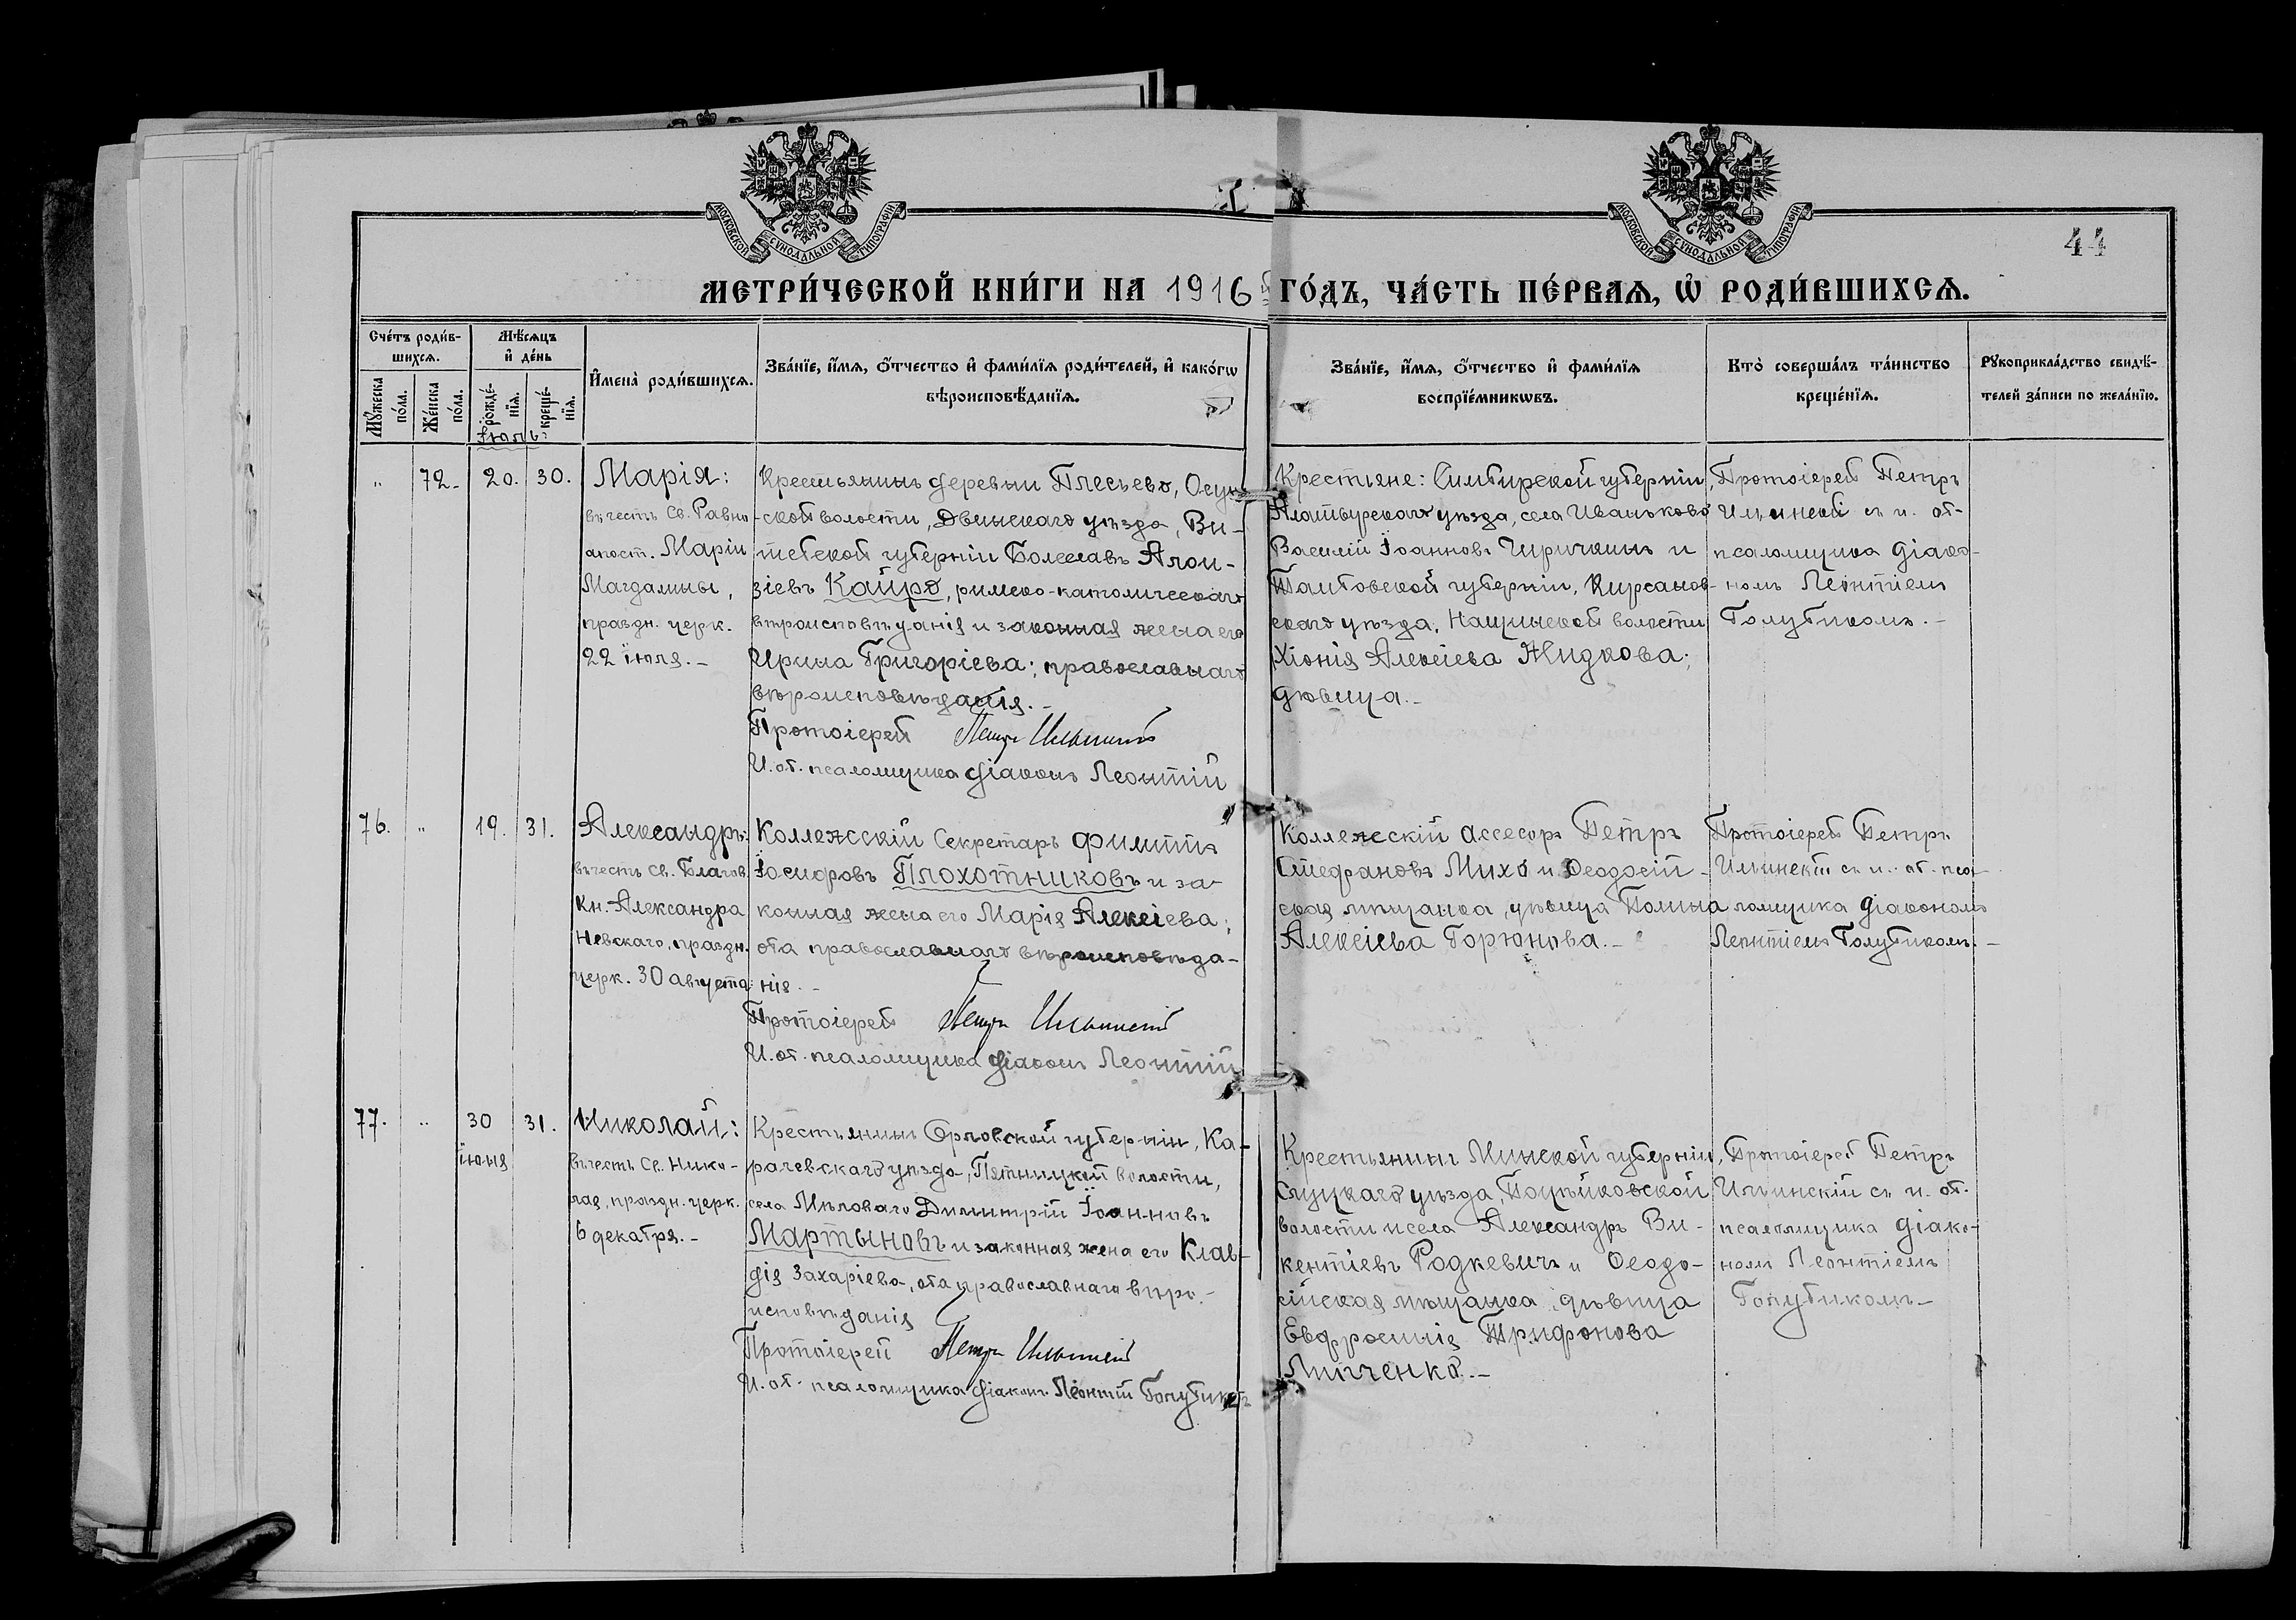 МОСКОВСКОЙ СУНОДАЛЬНОЙ ТИПОГРАФІИ
МОСКОВСКОЙ СУНОДАЛЬНОЙ ТИПОГРАФІИ
44
МЕТРИ́ЧЕСКОЙ КНИ́ГИ НА 1916 ГО́ДЪ, ЧА́СТЬ ПЕ́РВАЯ, Ѡ҆ РОДИ́ВШИХСЯ.
Сче́тъ роди́в-
шихся.
Мѣ́сяцъ
и҆ де́нь
Мꙋ́жеска
по́ла.
Же́нска
по́ла.
рожде́-
нїя.
креще́-
нїя.
Июль
И҆мена̀ роди́вшихся.
Зва́нїе, и҆́мя, ѻ҆́тчество и҆ фами́лїя роди́телей, и҆ како́гѡ
вѣроисповѣ́данїя.
Зва́нїе, и҆́мя, ѻ҆́тчество и҆ фами́лїя
воспрїе́мникѡвъ.
Кто̀ соверша́лъ та́инство
креще́нїя.
Рꙋкоприкла́дство свидѣ́-
телей за́писи по жела́нїю.
" 72. 20. 30.
Марія:
въ честь Св. Равно
апост. Маріи
Магдалины,
праздн. церк.
22 іюля.-
Крестьянинъ деревни Плесьево, Осун-
-ской волости, Двинскаго уѣзда, Ви-
тебской губерніи Болеславъ Алои-
зіевъ Кайро, римско-католическаго
вѣроисповѣданія и законная жена его
Ирина Григоріева; православнаго
вѣроисповѣданія.-
Протоіерей Петръ Ильинскій
И. об. псаломщика діаконъ Леонтій
Крестьяне: Симбирской губерніи,
Алатырскаго уѣзда, села Иваньково
Василій Іоанновъ Чиричкинъ и
Тамбовской губерніи, Кирсанов-
скаго уѣзда, Нащинской волости
Хіонія Алексіева Жидкова;
дѣвица.-
Протоіерей Петръ
Ильинскій съ и. об-
псаломщика діако-
номъ Леонтіемъ
Голубикомъ.-
76. " 19. 31.
Александръ:
въ честь Св. Благов.
Кн. Александра
Невскаго, праздн.
церк. 30 августа.
Коллежскій Секретарь Филиппъ
Іосифовъ Плохотниковъ и за-
конная жена его Марія Алексіева;
оба православнаго вѣроисповѣда-
нія.-
Протоіерей Петръ Ильинскій
И. об. псаломщика діаконъ Леонтій
Коллежскій ассесоръ Петръ
Стефановъ Михо и Ѳеодосій-
ская мѣщанка, дѣвица Полина
Алексіева Горюнова.-
Протоіерей Петръ
Ильинскій съ и. об. пса-
ломщика діакономъ
Леонтіемъ Голубикомъ.-
77. " 30 31.
іюня
Николай:
въ честь Св. Нико-
лая, праздн. церк.
6 декабря.-
Крестьянинъ Орловской губерніи, Ка-
рачевскаго уѣзда, Пятницкой волости,
села Мѣловаго Димитрій Іоанновъ
Мартыновъ и законная жена его Клав-
дія Захаріева, оба православнаго вѣро-
исповѣданія
Протоіерей Петръ Ильинскій
И. об. псаломщика діаконъ Леонтій Голубикъ
Крестьянинъ Минской губерніи,
Слуцкаго уѣзда,
волости и села Александръ Ви-
кентіевъ Родкевичъ и Ѳеодо-
сійская мѣщанка, дѣвица
Евфросинія Трифонова
Липченко.-
Протоіерей Петръ
Ильинскій съ и. об.
псаломщика діако-
номъ Леонтіемъ
Голубикомъ-